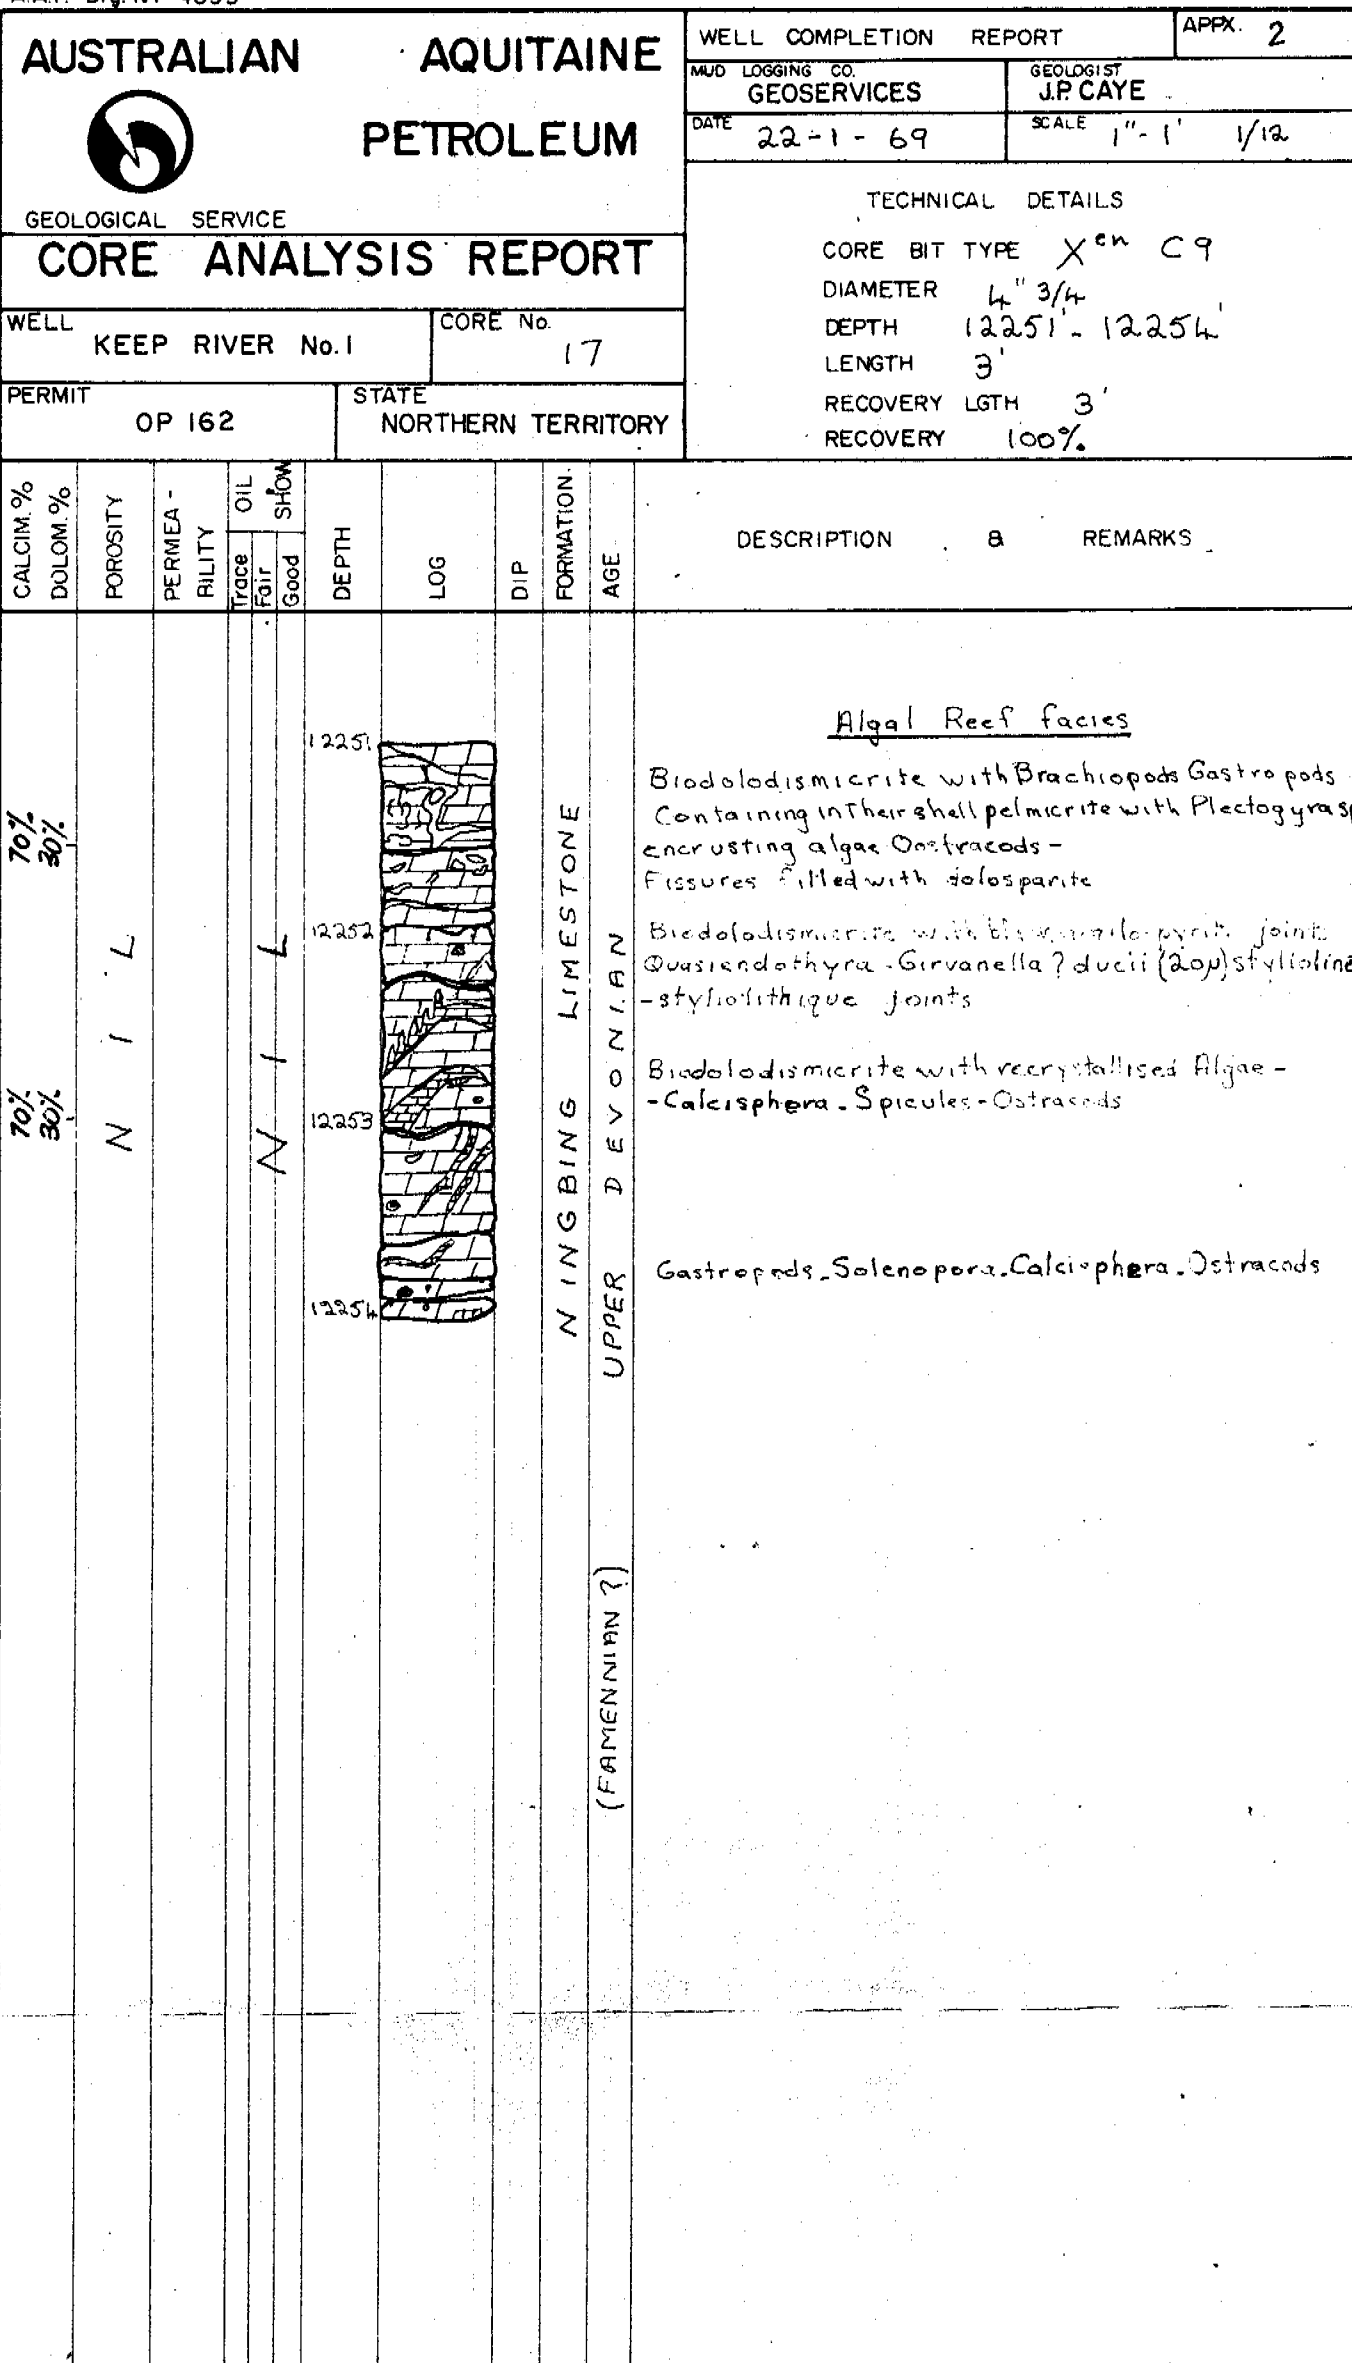 AUSTRALIAN AQUITAINE
PETROLEUM
GEOLOGICAL SERVICE
CORE ANALYSIS REPORT
WELL
KEEP RIVER No. 1
CORE No.
17
PERMIT
OP 162
STATE
NORTHERN TERRITORY
WELL COMPLETION REPORT
APPX. 2
MUD LOGGING CO.
GEOSERVICES
GEOLOGIST
J.P. CAYE
DATE 22-1-69
SCALE 1"-1' 1/12
TECHNICAL DETAILS
CORE BIT TYPE Xen C9
DIAMETER 4" 3/4
DEPTH 12251' - 12254'
LENGTH 3'
RECOVERY LGTH 3'
RECOVERY 100%
CALCIM. %
DOLOM. %
POROSITY
PERMEA-
BILITY
OIL SHOW
Trace
Fair
Good
DEPTH
LOG
DIP
FORMATION.
AGE
DESCRIPTION & REMARKS
Algal Reef facies
12251
Biodolodismicrite with Brachiopods Gastropods
Containing in Their shell pelmicrite with Plectogyra sp
encrusting algae Oostracods -
Fissures filled with dolosparite
70%
30%
12252
Biodolodismicrite with pyrite joint
Quasiendothyra - Girvanella ? ducii (20µ) stylioline
- styliolithique joints
Biodolodismicrite with recrystallised Algae -
- Calcisphera - Spicules - Ostracods
70%
30%
12253
Gastropods - Solenopora - Calcisphera - Ostracods
12254
NIL
NIL
NINGBING LIMESTONE
UPPER DEVONIAN
(FAMENNIAN ?)